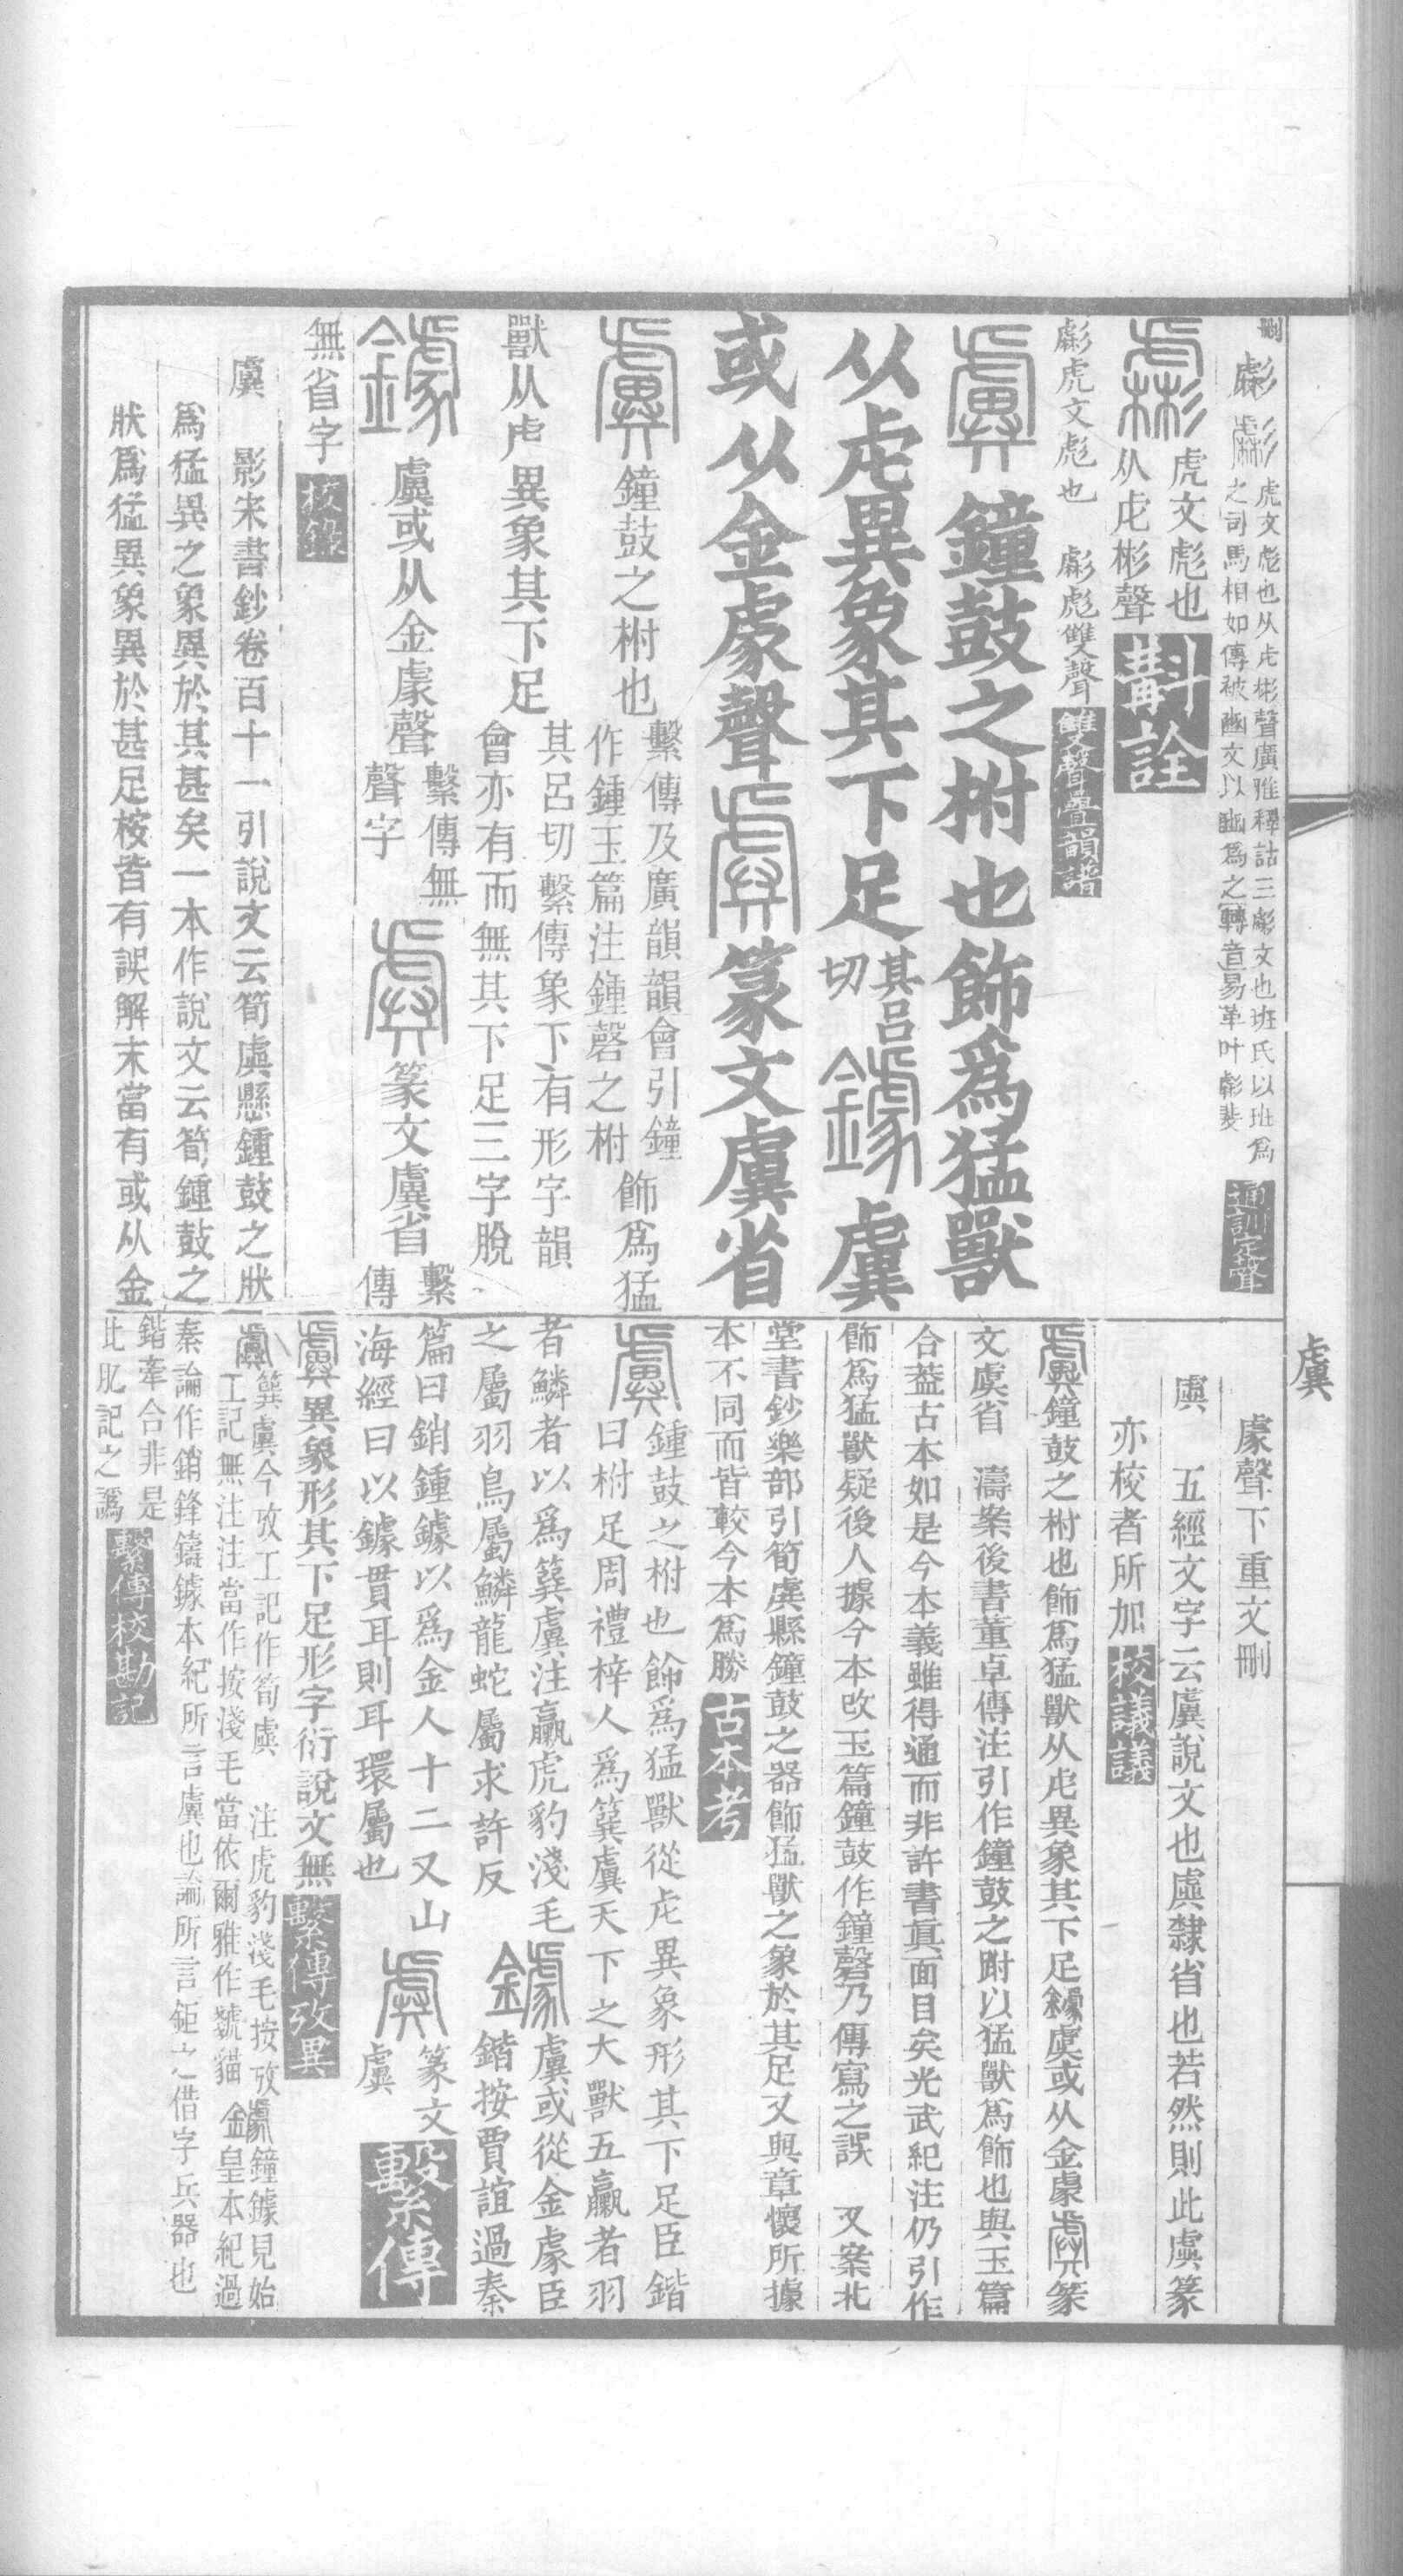 刪
虎文彪也从虍彬聲廣雅釋詁三彪文也班氏以班爲
之司馬相如傳被豳文以豳爲之轉音易革叶彪斐
通訓定聲
虎文彪也
从虍彬聲
斠詮
虎文彪也
彪雙聲
雙聲疊韻譜
鐘鼓之柎也飾爲猛獸
从虍異象其下足
其呂
切
虡
或从金豦聲
篆文虡省
鐘鼓之柎也
繫傳及廣韻韻會引鐘
作鍾玉篇注鍾磬之柎
飾爲猛
獸从虍異象其下足
其呂切繫傳象下有形字韻
會亦有而無其下足三字脫
虡或从金豦聲
繫傳無
聲字
篆文虡省
繫
傳
無省字
校錄
虡 影宋書鈔卷百十一引說文云筍虡懸鍾鼓之狀
爲猛異之象異於其甚矣一本作說文云筍鍾鼓之
狀爲猛異象異於甚足桉皆有誤解末當有或从金
虡
豦聲下重文刪
虡 五經文字云虡說文也虡隸省也若然則此虡篆
亦校者所加
校議議
鐘鼓之柎也飾爲猛獸从虍異象其下足鐻虡或从金豦
篆
文虡省 濤案後書董卓傳注引作鐘鼓之跗以猛獸爲飾也與玉篇
合葢古本如是今本義雖得通而非許書眞面目矣光武紀注仍引作
飾爲猛獸疑後人據今本改玉篇鐘鼓作鐘磬乃傳寫之誤 又案北
堂書鈔樂部引筍虡縣鐘鼓之器飾猛獸之象於其足又與章懷所據
本不同而皆較今本爲勝
古本考
鍾鼓之柎也飾爲猛獸從虍異象形其下足臣鍇
曰柎足周禮梓人爲簨虡天下之大獸五臝者羽
者鱗者以爲簨虡注臝虎豹淺毛
之屬羽鳥屬鱗龍蛇屬求許反
虡或從金豦臣
鍇按賈誼過秦
篇曰銷鍾鐻以爲金人十二又山
海經曰以鐻貫耳則耳環屬也
篆文
虡
繫傳
異象形其下足形字衍說文無
繫傳攷異
簨虡今攷工記作筍虡 注虎豹淺毛按攷
工記無注注當作按淺毛當依爾雅作虦貓
鐘鐻見始
皇本紀過
秦論作銷鋒鑄鐻本紀所言虡也論所言鉅之借字兵器也
鍇牽合非是
比肊記之譌
繫傳校勘記